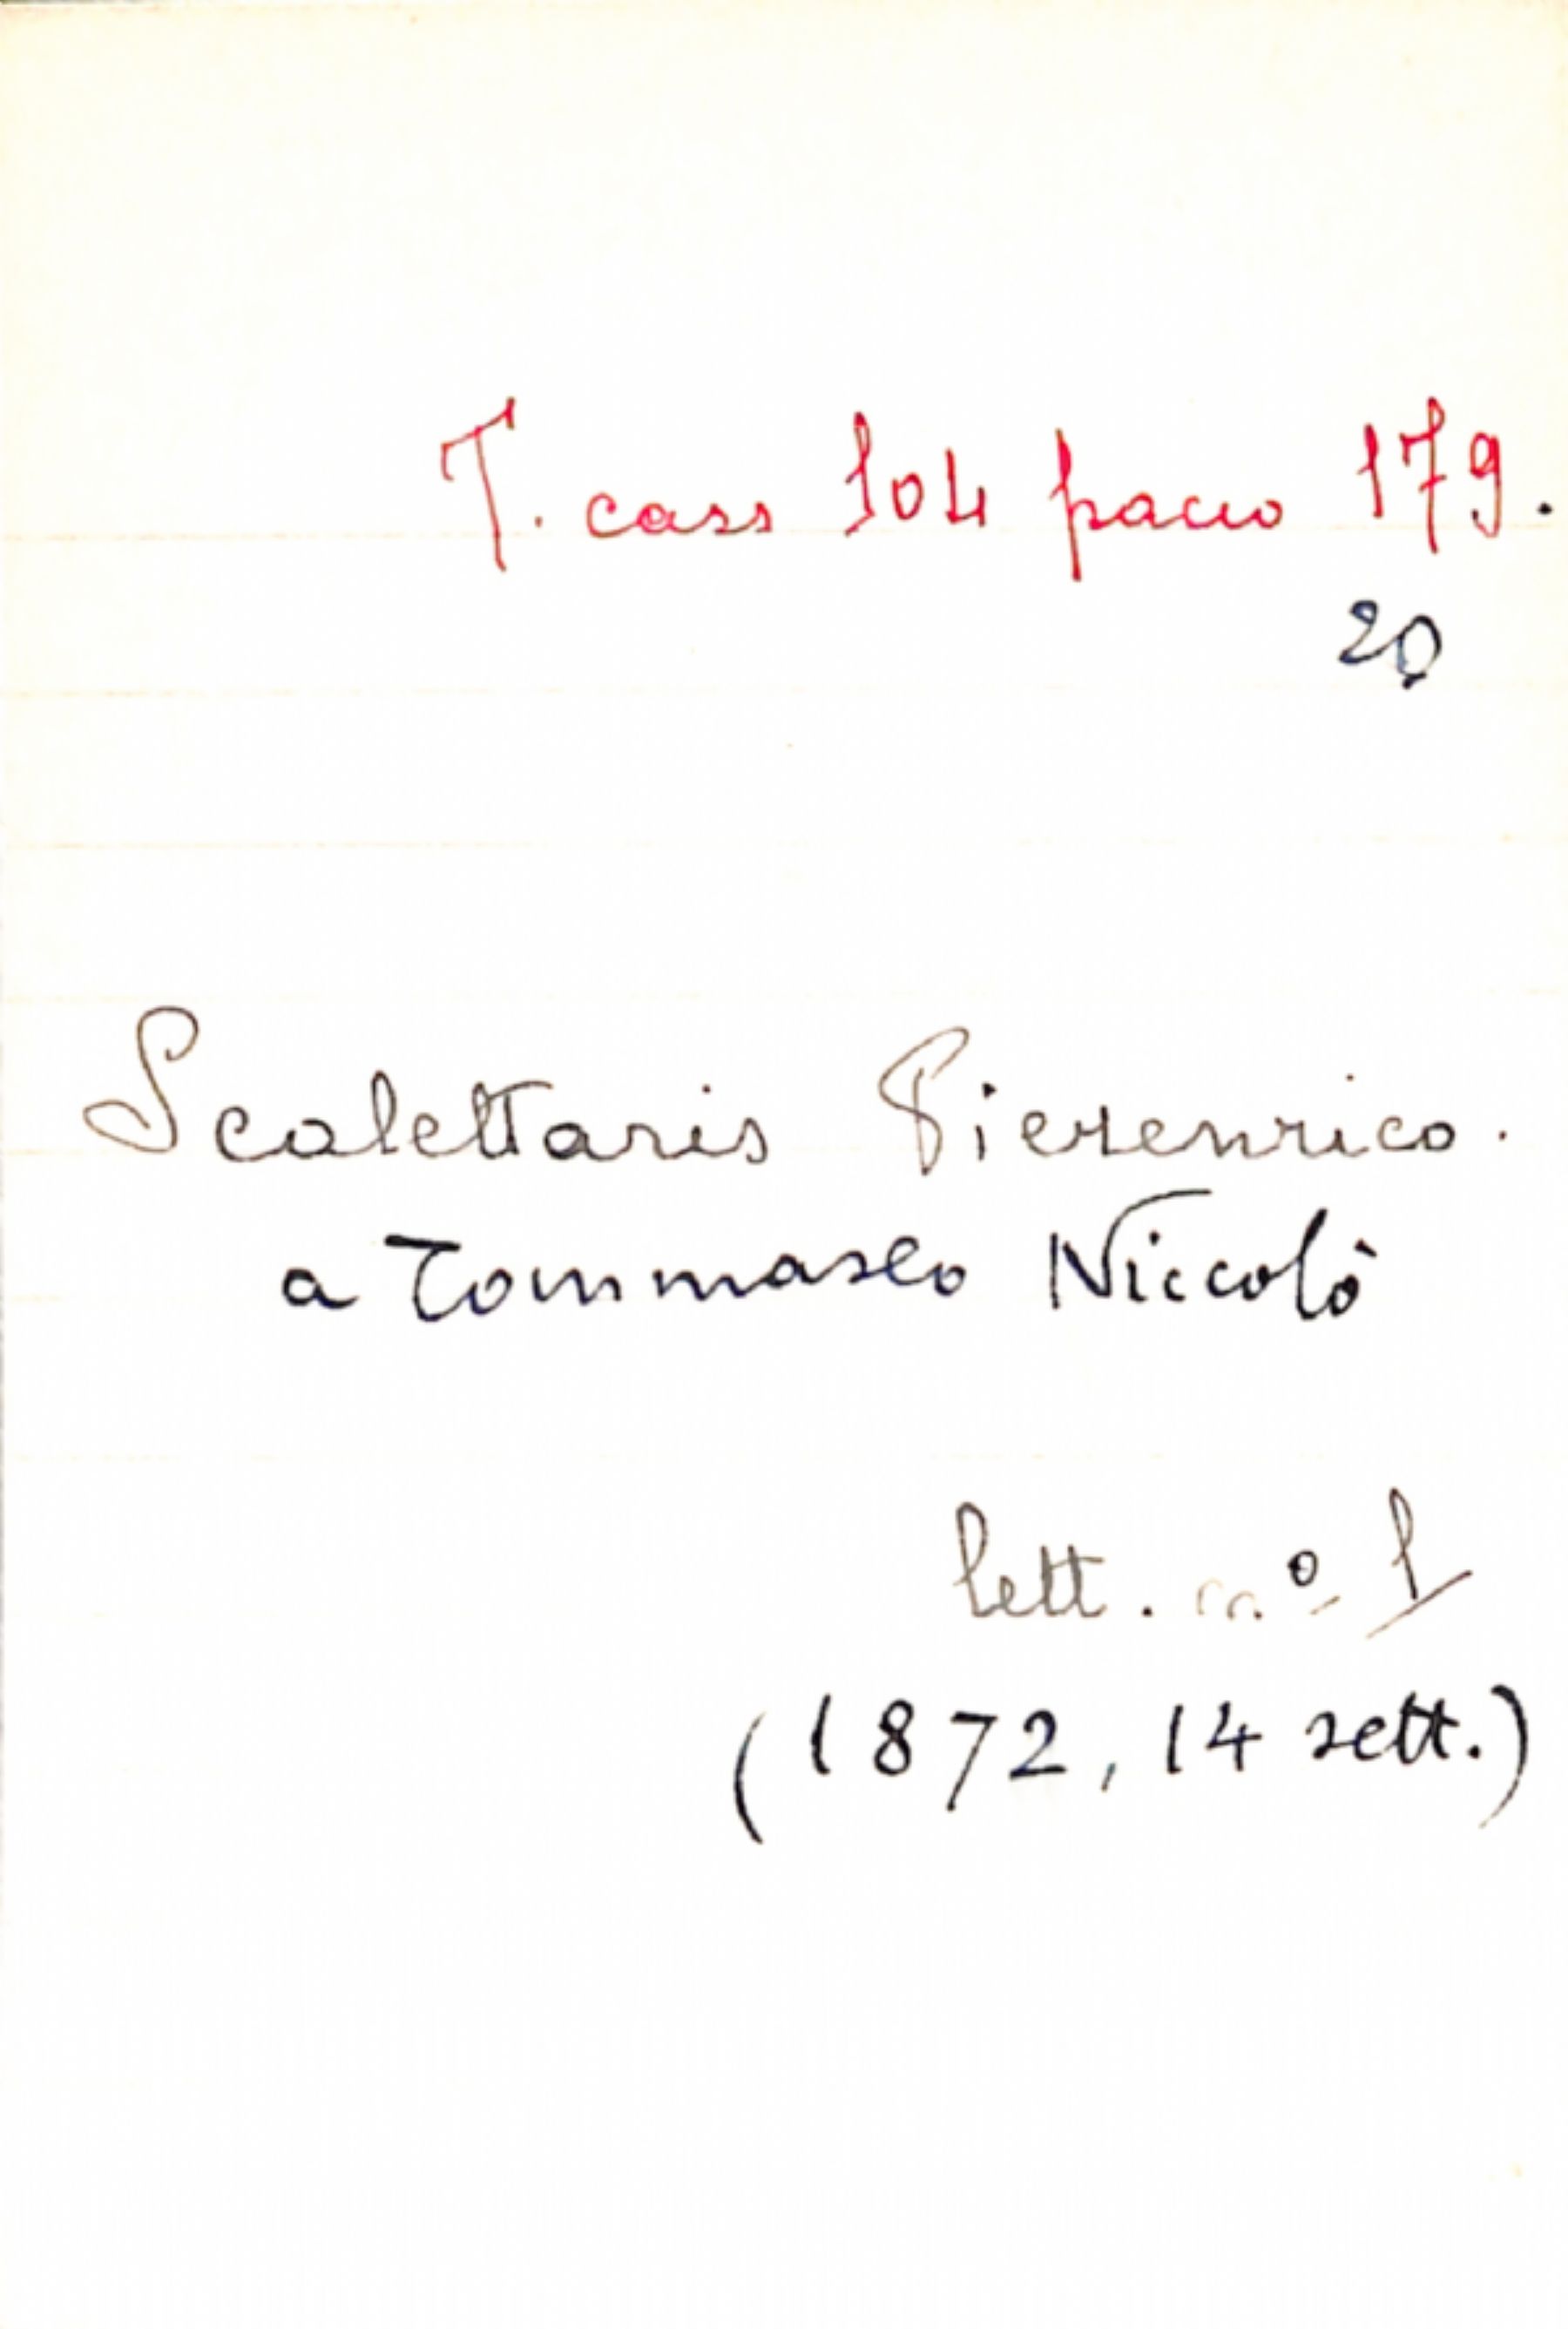 T. cass 104 pacco 179.
20
Scalettaris Pierenrico.
a Tommaseo Niccolò
lett. n.º 1
(1872, 14 sett.)